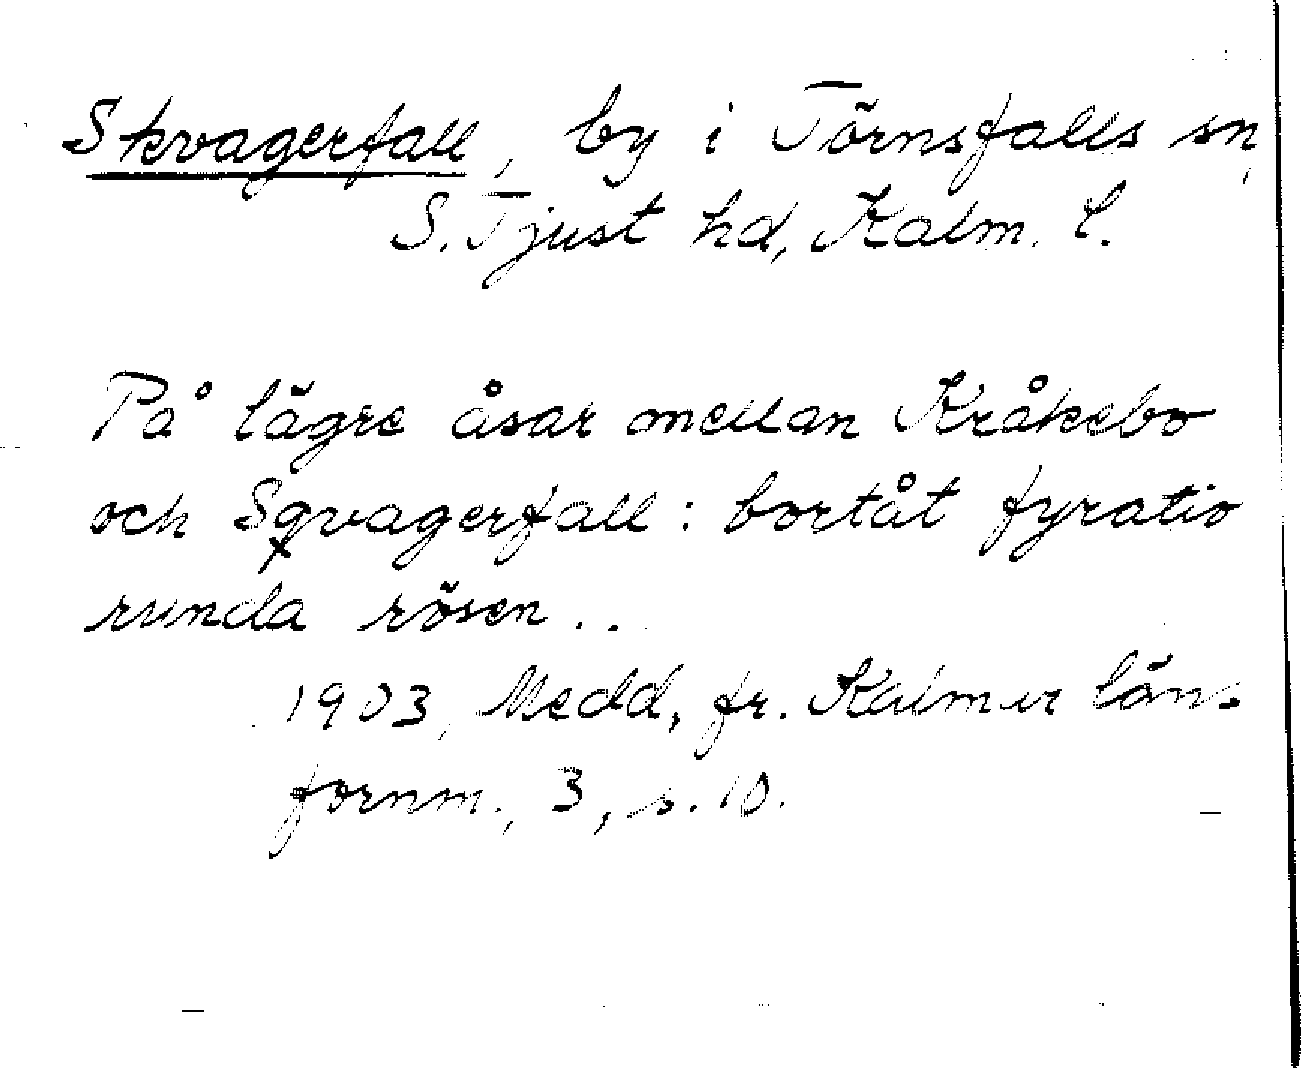 Skvagerfall, by i Törnsfalls sn,
S. Tjust hd, Kalm. l.
På lägre åsar mellan Kråkebo
och Sqvagerfall: bortåt fyratio
runda rösen..
1903, Medd, fr. Kalmar läns
fornm., 3, s. 10.